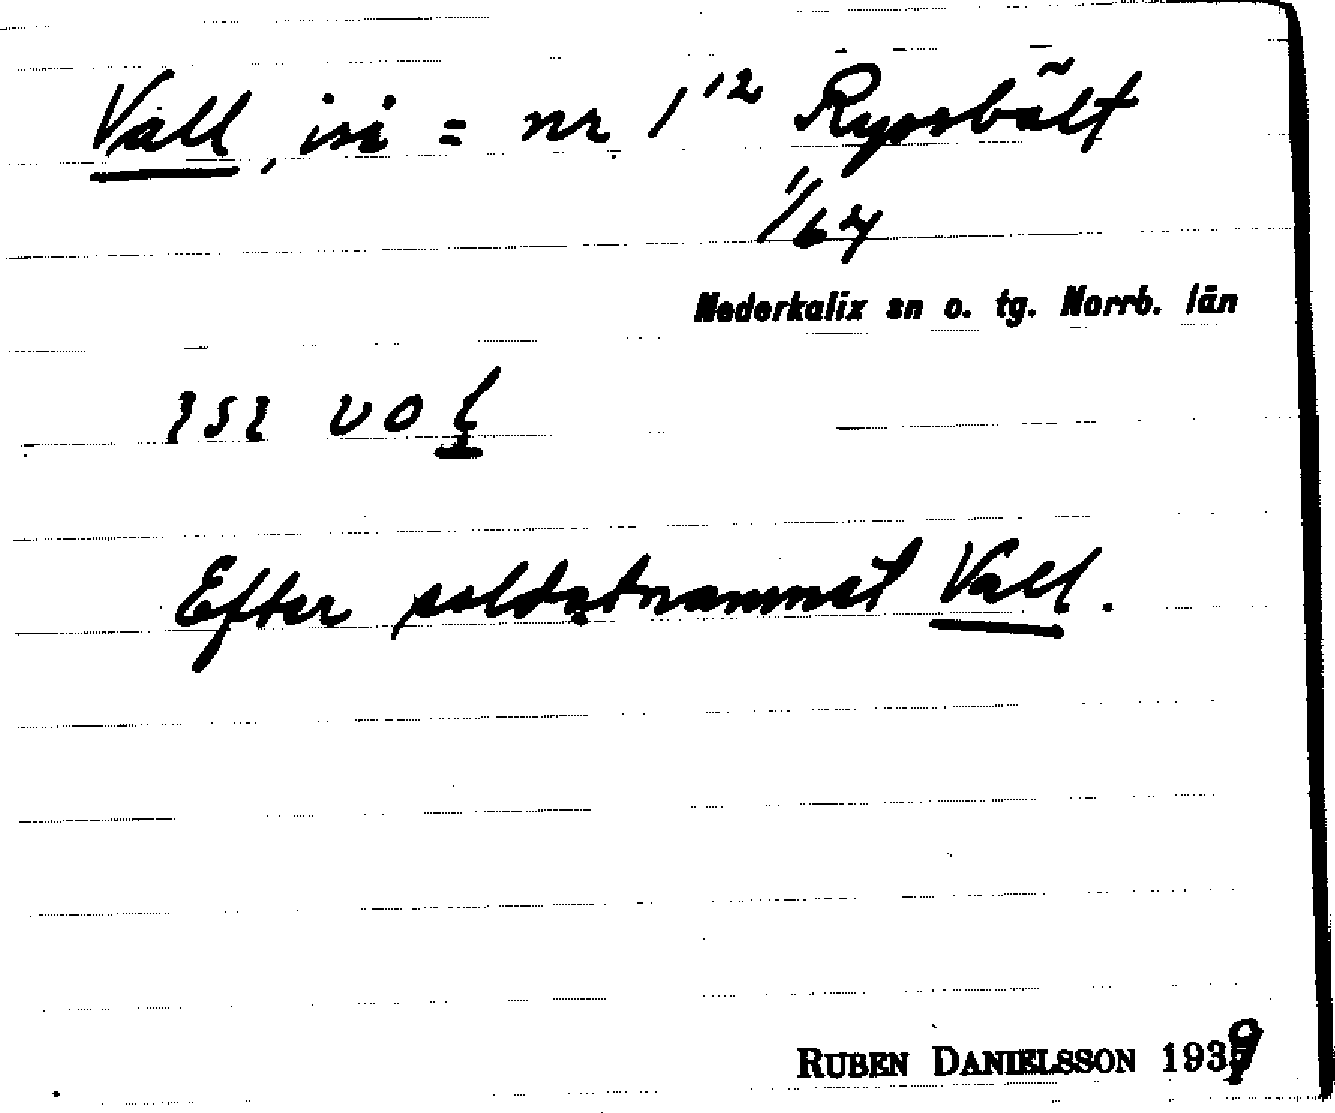 Vall, isi = nr 1¹² Ryssbält
11/67
Nederkalix sn o. tg. Norrb. län
ISI VOL
Efter soldatnamnet Vall.
RUBEN DANIELSSON 1939